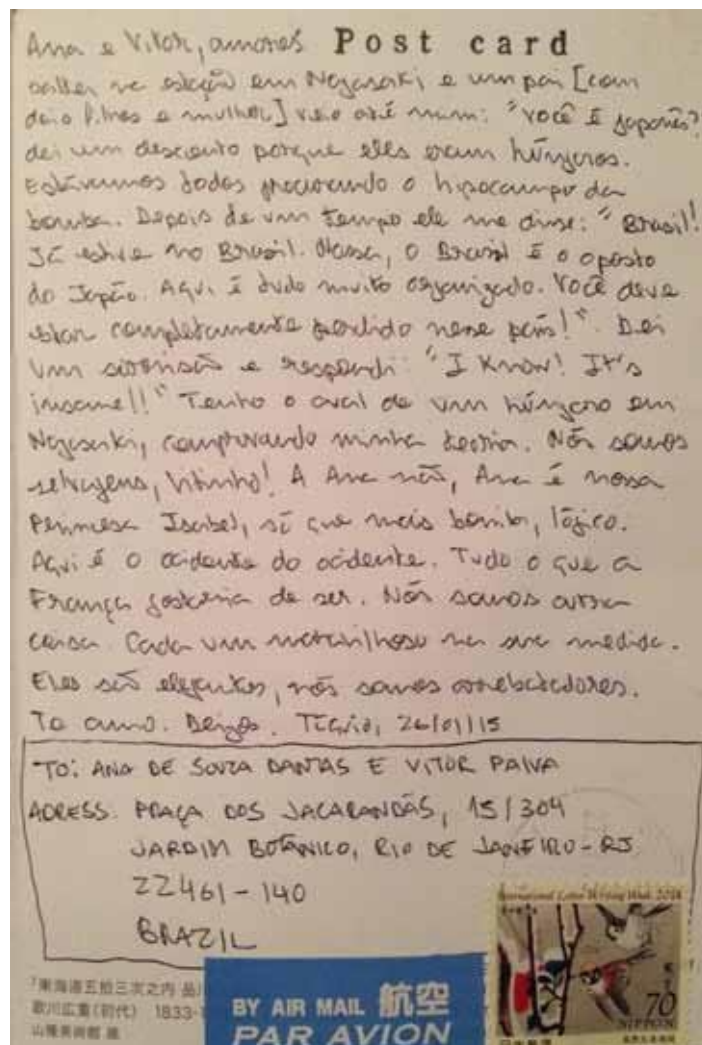 Ana e Vitor, amores Post card
saltei na estação em Nagasaki e um pai [com
dois filhos e mulher] veio até mim: "Você é japonês?
dei um desconto porque eles eram húngaros.
Estávamos todos procurando o hipocampo da
bomba. Depois de um tempo ele me disse: "Brasil!
Já estive no Brasil. Nossa, o Brasil é o oposto
do Japão. Aqui é tudo muito organizado. Você deve
estar completamente perdido nesse país!". Dei
um sorrisão e respondi: "I know! It's
insane!!" Tenho o aval de um húngaro em
Nagasaki, comprovando minha teoria. Nós somos
selvagens, Vitinho! A Ana não, Ana é nossa
Princesa Isabel, só que mais bonita, lógico.
Aqui é o ocidente do ocidente. Tudo o que a
França gostaria de ser. Nós somos outra
coisa. Cada um maravilhoso na sua medida.
Eles são elegantes, nós somos arrebatadores.
Te amo. Beijos. 26/01/15
TO: ANA DE SOUZA DANTAS E VITOR PAIVA
ADRESS: PRAÇA DOS JACARANDÁS, 15/304
JARDIM BOTÂNICO, RIO DE JANEIRO - RJ
22461-140
BRAZIL
International Letter Writing Week 2014
「東海道五拾三次之内 品川
歌川広重(初代) 1833-
山種美術館 蔵
BY AIR MAIL 航空
PAR AVION
70
NIPPON
日本郵便